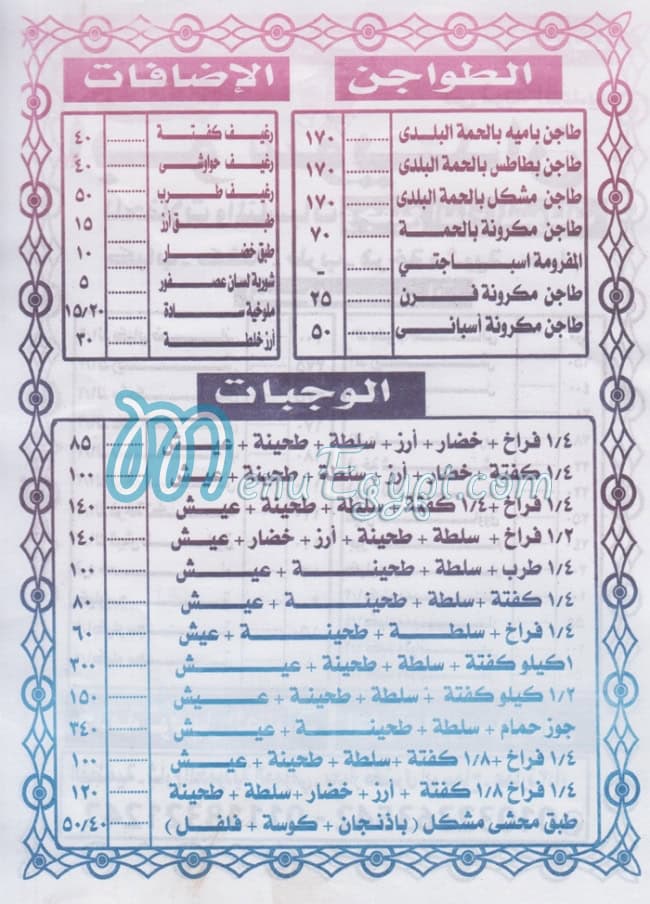 الطواجن
طاجن باميه بالحمة البلدى ١٧٠
طاجن بطاطس بالحمة البلدى ١٧٠
طاجن مشكل بالحمة البلدى ١٧٠
طاجن مكرونة بالحمة ٧٠
المفرومة اسباجتي -
طاجن مكرونة فرن ٢٥
طاجن مكرونة أسبانى ٥٠
الإضافات
رغيف كفتة ٤٠
رغيف حواوشى ٤٠
رغيف طرب ٥٠
طبق أرز ١٥
طبق خضار ١٠
شوربة لسان عصفور ٥
ملوخية سادة ١٥/٢٠
أرز خلطة ٣٠
الوجبات
١/٤ فراخ + خضار + أرز + سلطة + طحينة + عيش ٨٥
١/٤ كفتة + خضار + أرز + سلطة + طحينة + عيش ١٠٠
١/٤ فراخ + ١/٤ كفتة + سلطة + طحينة + عيش ١٤٠
١/٢ فراخ + سلطة + طحينة + أرز + خضار + عيش ١٤٠
١/٤ طرب + سلطة + طحينة + عيش ١٠٠
١/٤ كفتة + سلطة + طحينة + عيش ٨٠
١/٤ فراخ + سلطة + طحينة + عيش ٦٠
١ كيلو كفتة + سلطة + طحينة + عيش ٣٠٠
١/٢ كيلو كفتة + سلطة + طحينة + عيش ١٥٠
جوز حمام + سلطة + طحينة + عيش ٣٤٠
١/٤ فراخ + ١/٨ كفتة + سلطة + طحينة + عيش ١٠٠
١/٤ فراخ ١/٨ كفتة + أرز + خضار + سلطة + طحينة ١٢٠
طبق محشى مشكل (باذنجان + كوسة + فلفل) ٥٠/٤٠
MenuEgypt.com